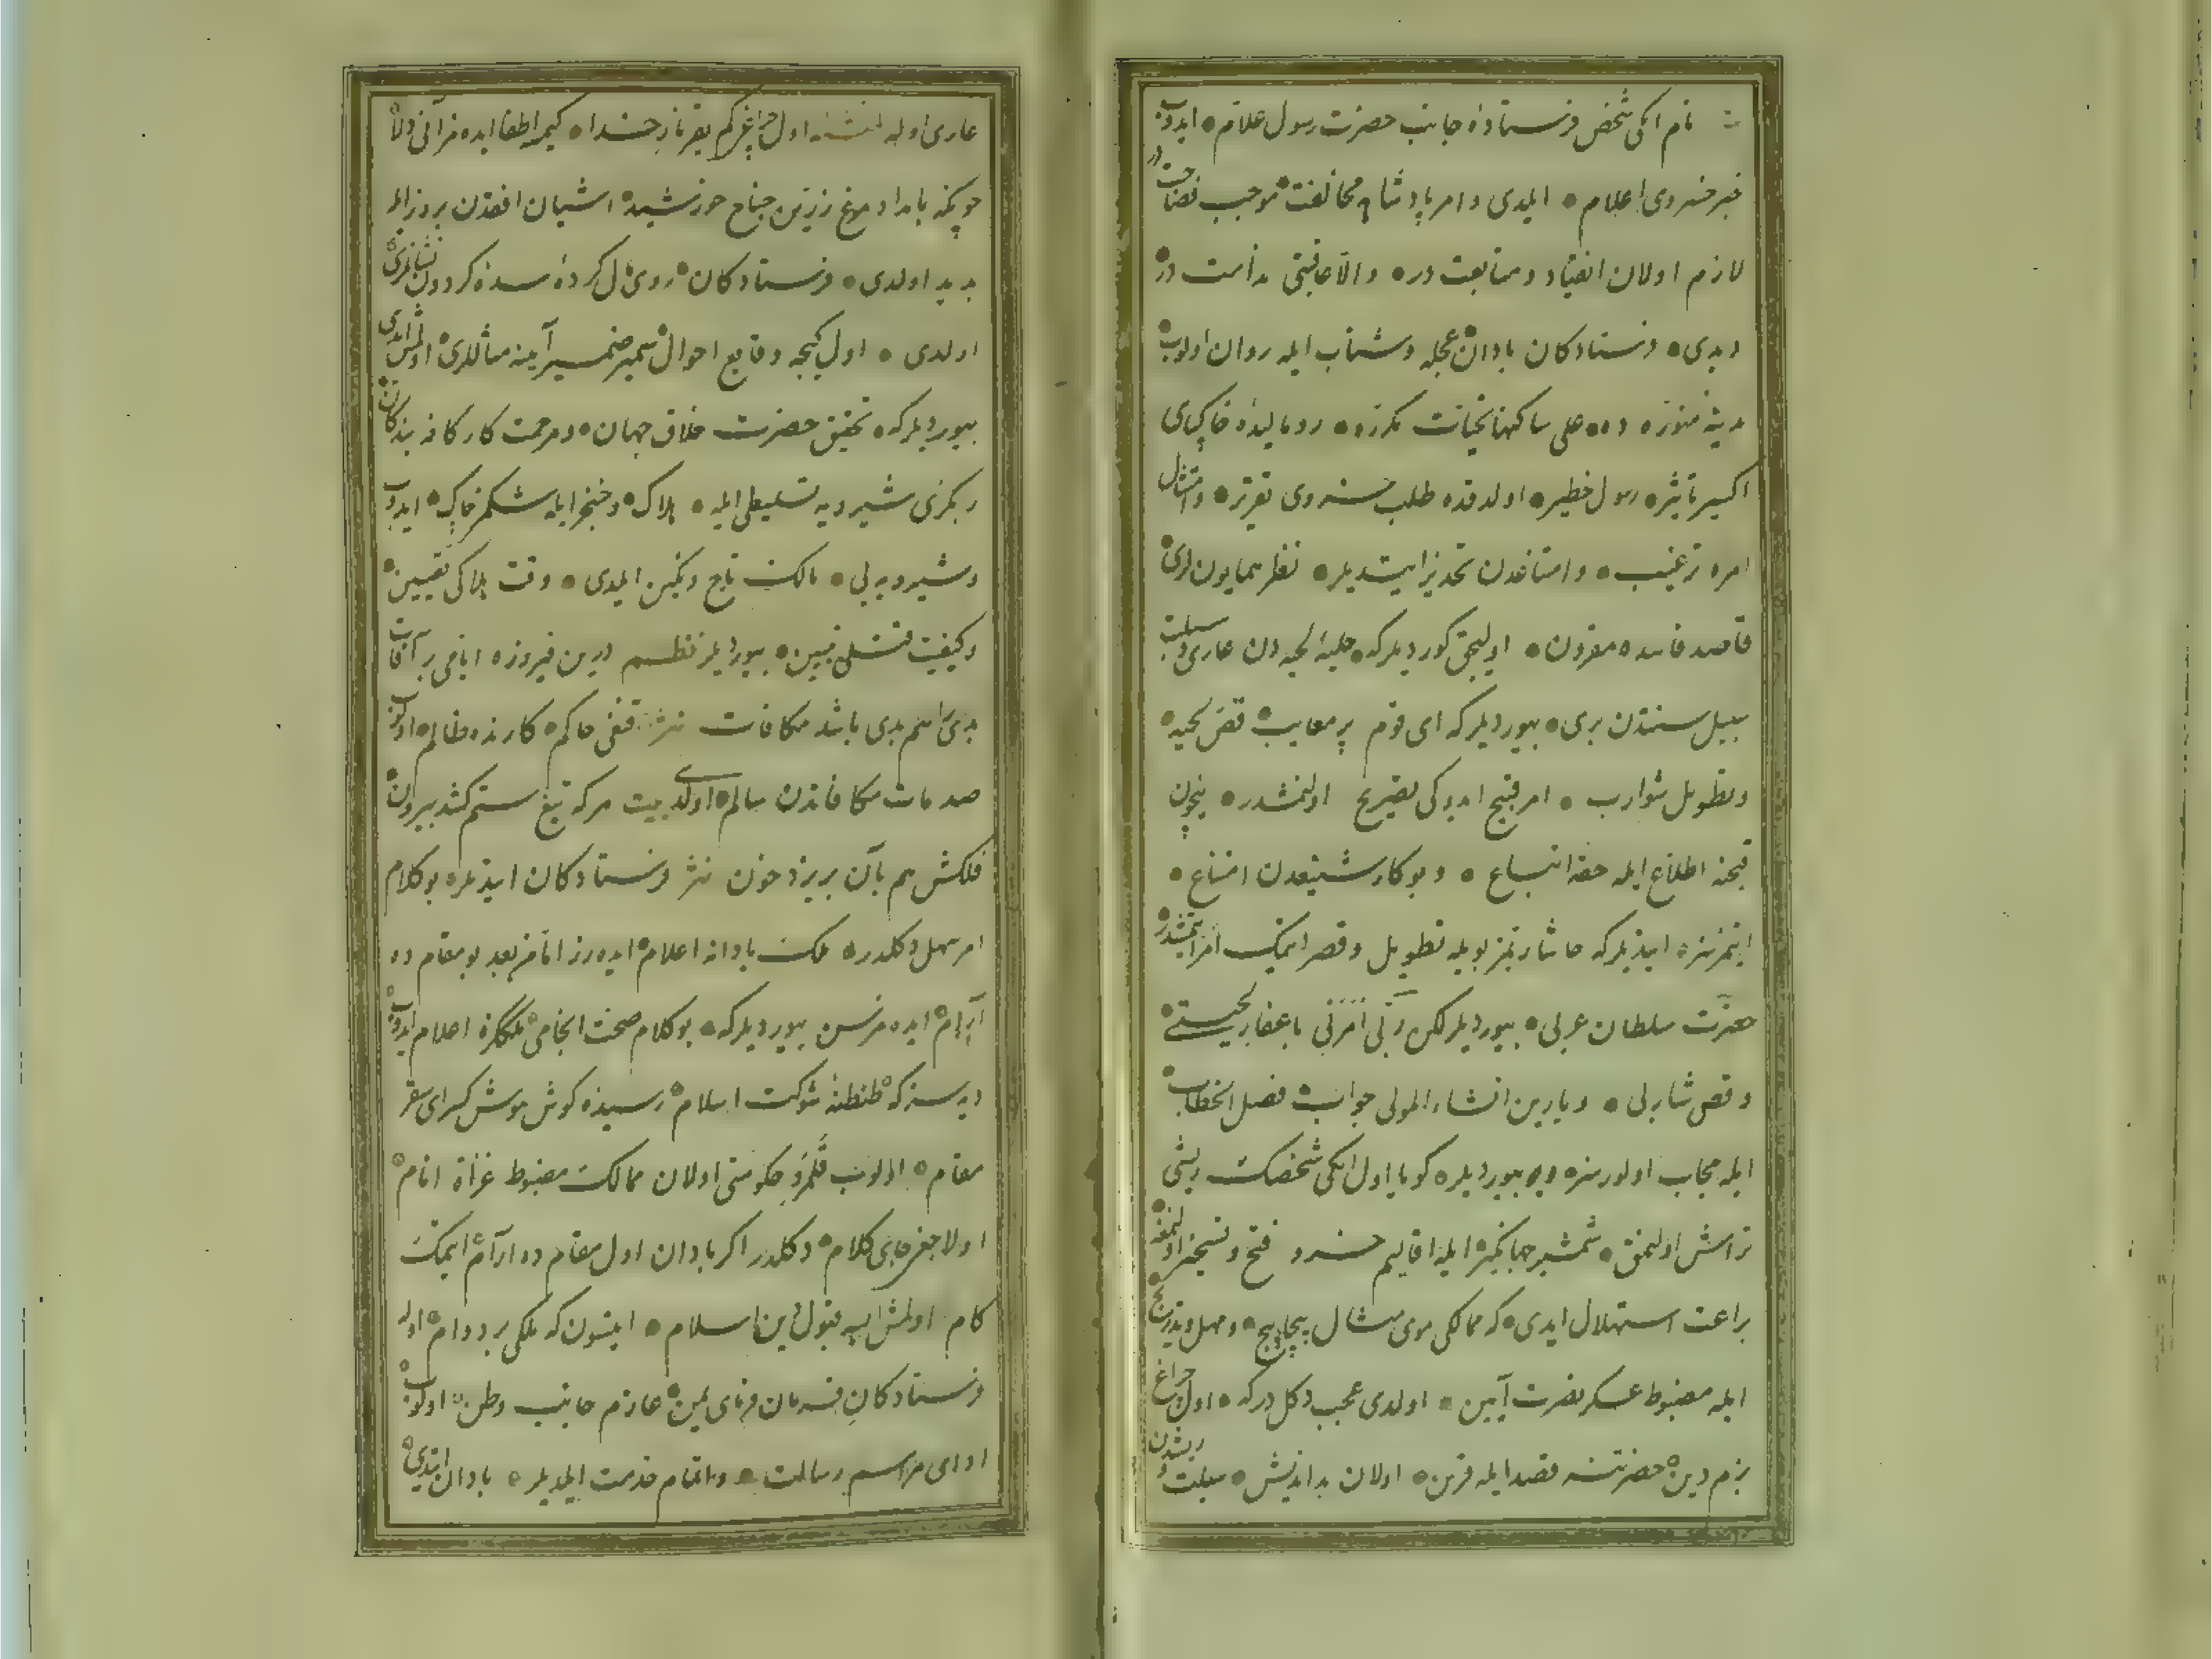 نام ایکی شخص فرستادهٔ جانب حضرت رسول علام ایدوب
خبر خسروی اعلام ایلدی و امر پادشاه مخالفت موجب
لازم اولان انقیاد و متابعت در والا عاقبتی ندامت در
دیدی فرستادکان بادان عجله و شتاب ایله روان اولوب
مدینهٔ منوره ده علی ساکنها تحیات مکرره رومالیدهٔ خاکپای
اکسیر تاثیر رسول خطیر اولدقده طلب خسروی تقریر و امتثال
امره ترغیب و امتناعدن تحذیر ایتدیلر نظر همایونلری
قاصد فاسده مقرون اولیجق کوردیلرکه حلیهٔ لحیه دن عاری و سبلت
سبیل سنتدن بری بیوردیلرکه ای قوم پر معایب قص لحیه
و تطویل شوارب امر قبیح ایدوکی تصریح اولنمشدر نیچون
قبحنه اطلاع ایله حقه اتباع و بو کار شنیعدن امتناع
ایتمزسز ایتدیلرکه حاشا ربمز بویله تطویل و قصر ایتمک امر ایتمشدر
حضرت سلطان عربی بیوردیلر لکن ربی امرنی باعفاء لحیتی
و قص شاربی و یارین انشاء المولی جواب فصل الخطاب
ایله مجاب اولورسز دیو بیوردیلر کویا اول ایکی شخصک ریشی
تراش اولنمق شمشیر جهانکیر ایله اقالیم خسرو فتح و تسخیر اولنمغه
براعت استهلال ایدی که ممالکی موی مثال پیچاپیچ و مهل و تدریج
ایله مضبوط عسکر نصرت آیین اولدی عجب دکل درکه اول چراغ
بزم دین حضرتنه قصد ایله قرین اولان بد اندیش سبلت و ریشدن
عاری اوله اول چراغی کم یقر نار خدا کیم اطفا ایده
چونکه بامداد مرغ زرین جناح خورشید آشیان افقدن
پدید اولدی فرستادکان روی ل کردهٔ سدهٔ کردون
اولدی اول کیجه وقایع احوال ضمیر آیینه مثاللری اولمش ایدی
بیوردیلرکه تحقیق حضرت خلاق جهان و مرحمت کار کافهٔ بندکان
ربکزی شیرویه تسلیطی ایله هلاک و خنجر ایله شکم چاک ایدوب
و شیرویه یی مالک تاج و نکین ایلدی وقت هلاکی تعیین
و کیفیت قتلی تبیین بیوردیلر نظم درین فیروزه ایوان پر آفات
بدی را هم بدی باشد مکافات نثر قنغی حاکم کارنده ظالم اولوب
صدمات مکافاتدن سالم اولدی بیت هرکه تیغ ستم کشد بیرون
فلکش هم بآن بریزد خون نثر فرستادکان ایتدیلر بو کلام
امر سهل دکلدر ملک بادانه اعلام ایده رز اما من بعد بو مقام ده
آرام ایده مزسن بیوردیلرکه بو کلام صحت انجامی ملککزه اعلام ایدوب
دیه سزکه طنطنهٔ شوکت اسلام رسیدهٔ کوش هوش کسرای سقر
مقام اولوب قلمرو حکومتی اولان ممالک مضبوط غزاة انام
اولاجغی جای کلام دکلدر اکر بادان اول مقام ده آرام ایتمک
کام اولمش ایسه قبول دین اسلام ایتسون که ملکی بر دوام اوله
فرستادکان فرمان فرمای یمن عازم جانب وطن اولوب
ادای مراسم رسالت و اتمام خدمت ایلدیلر بادان ایتدی